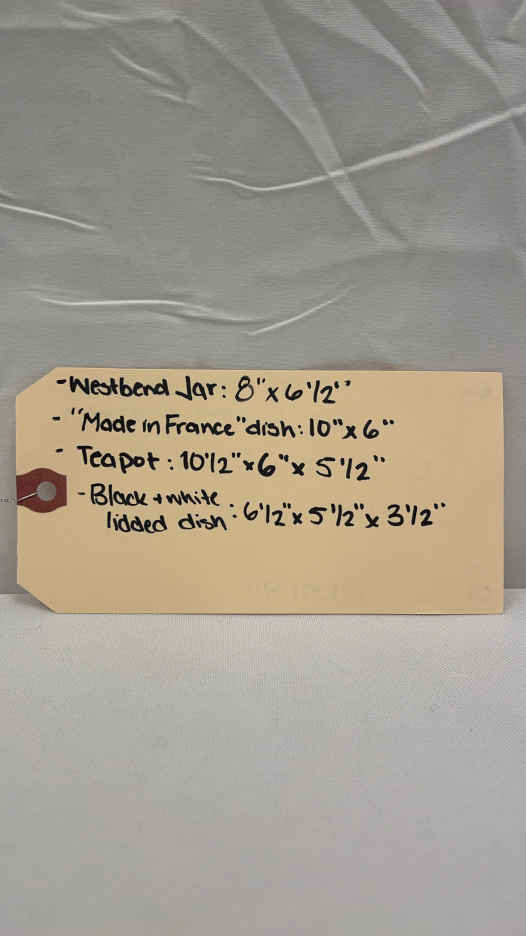 -Westbend Jar: 8"x 6 1/2"
- "Made in France" dish: 10"x 6"
- Teapot: 10 1/2"x 6"x 5 1/2"
- Black + white
lidded dish: 6 1/2"x 5 1/2"x 3 1/2"